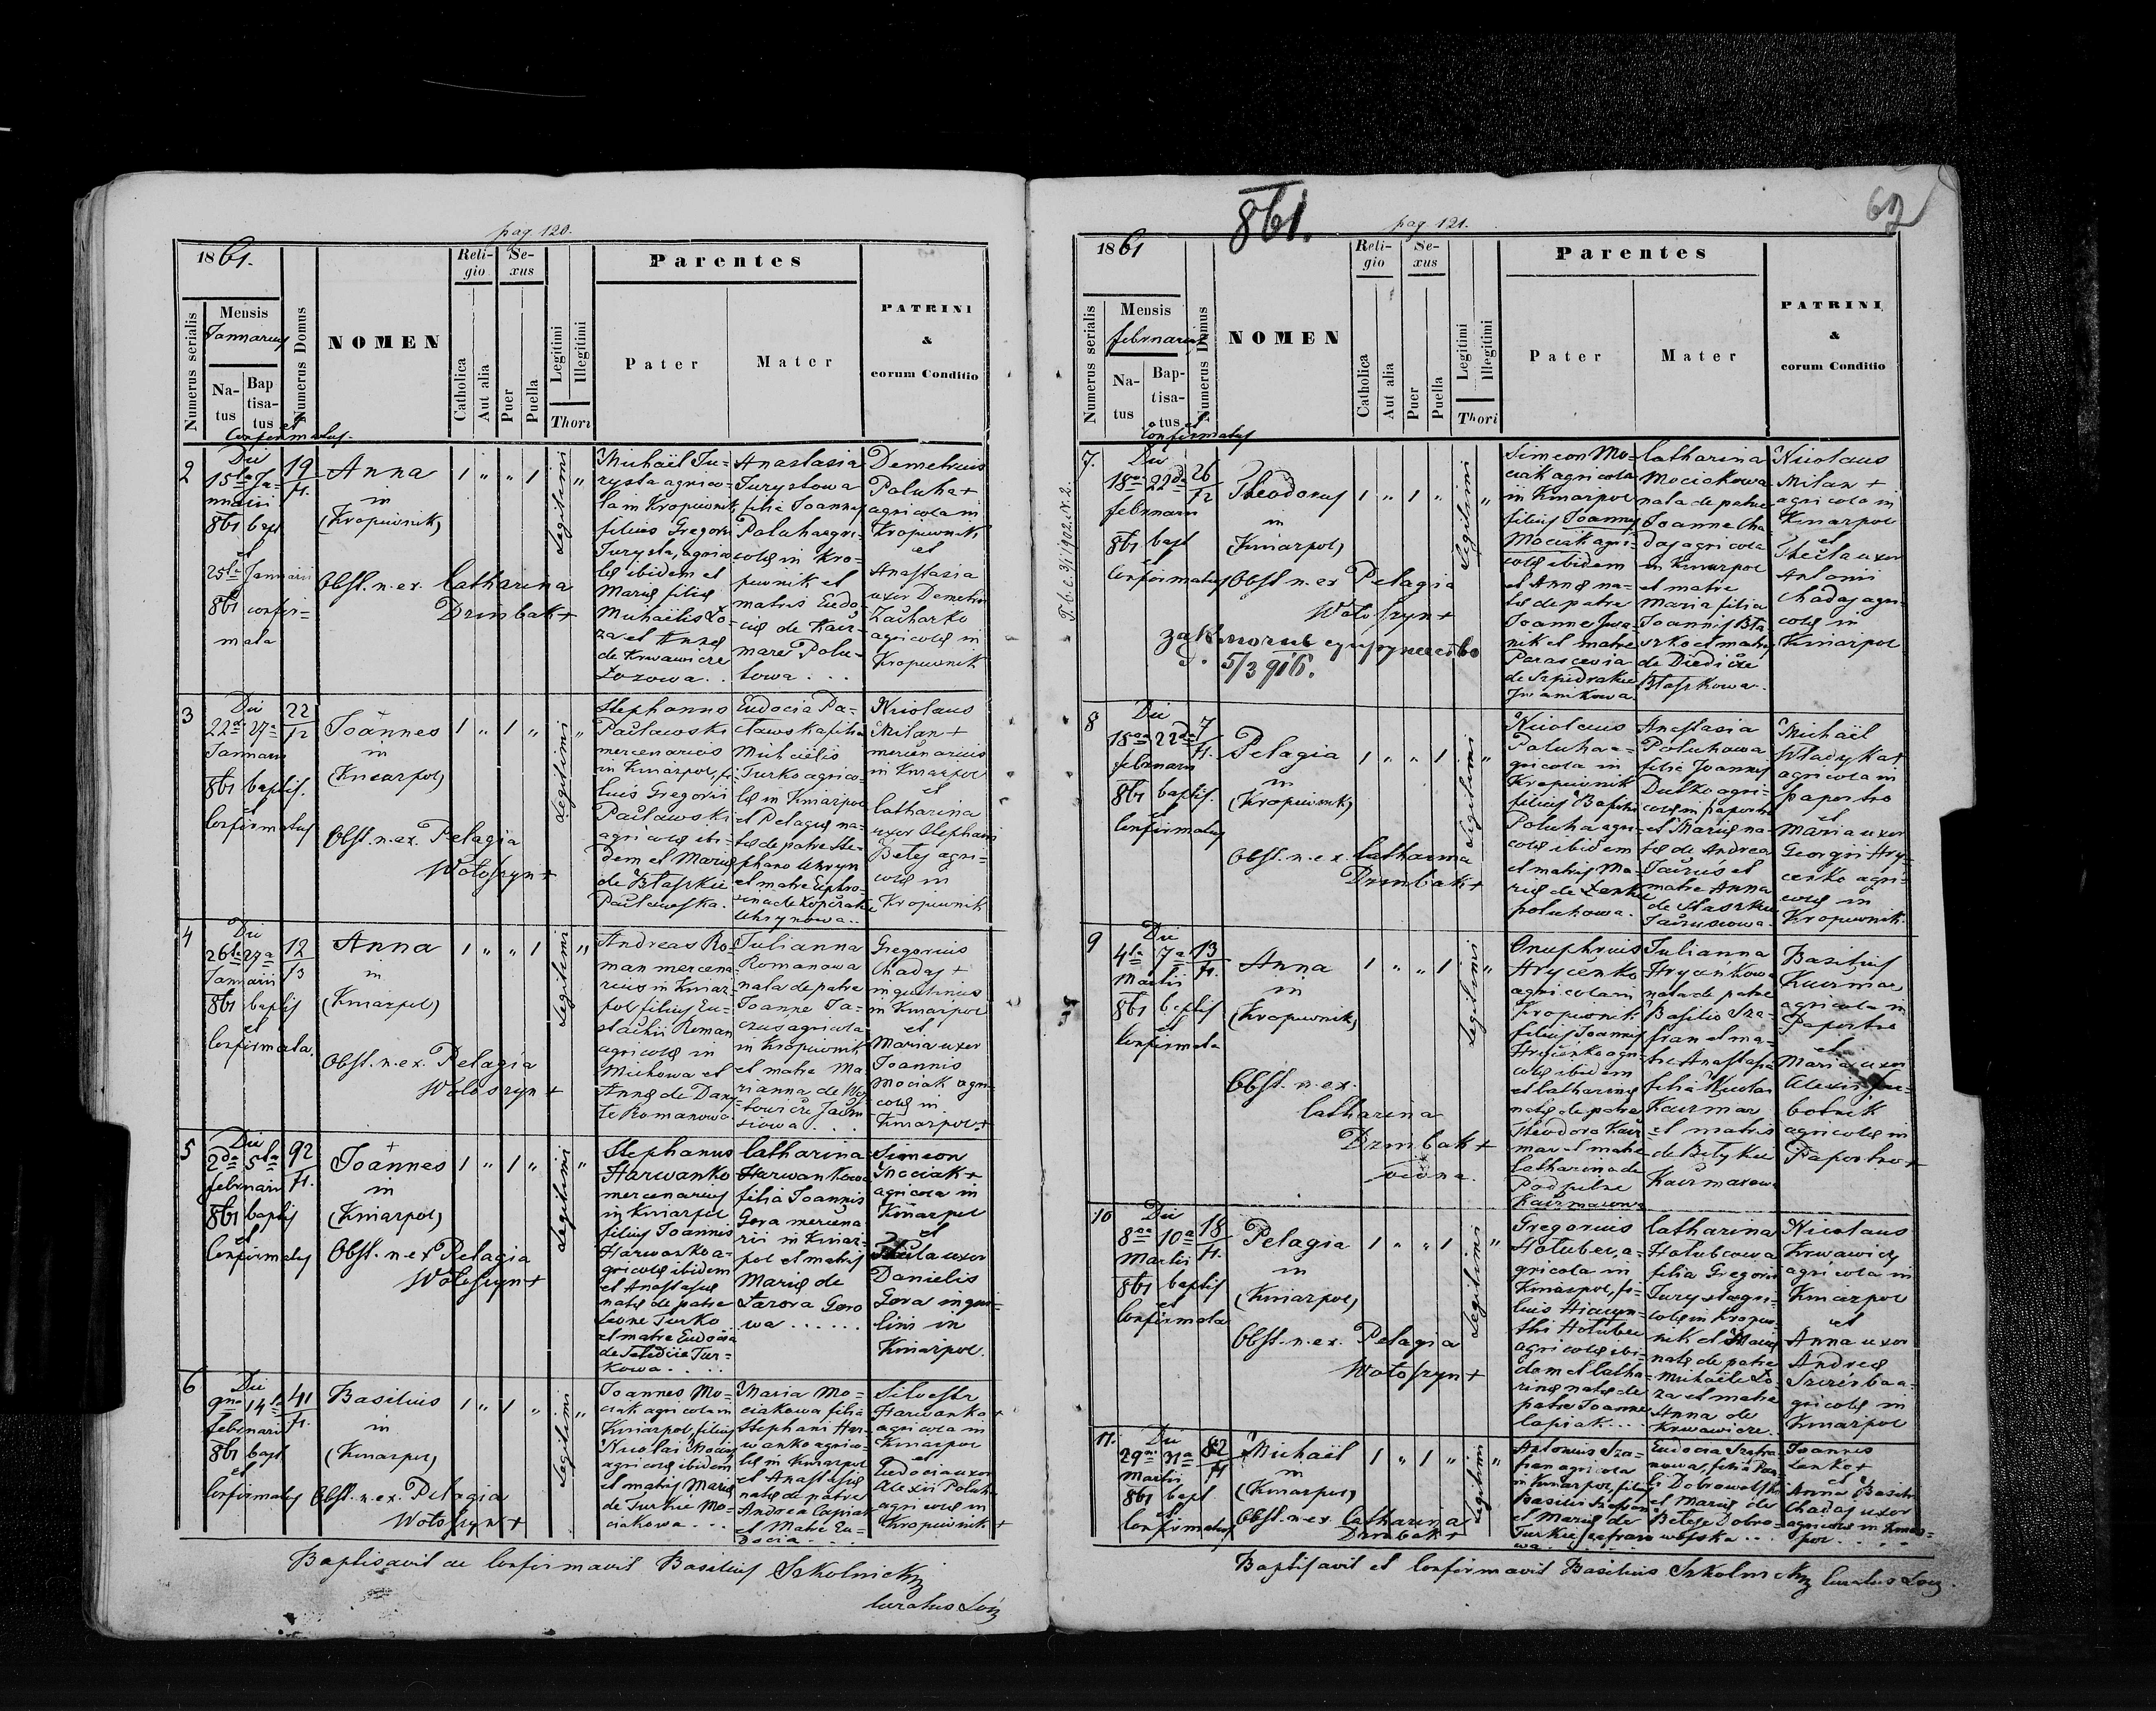 pag. 120.
1861.
Reli-
gio
Se-
xus
Parentes
Numerus serialis
Mensis
Januarius
Na-
tus
Bap
tisa-
tus
et
Confirmatus.
Numerus Domus
NOMEN
Catholica
Aut alia
Puer
Puella
Legitimi
Illegitimi
Thori
Pater
Mater
PATRINI
&
eorum Conditio
2
Die
15ta Ja-
nuarii
861 bapt
et
25ta Januarii
861 confir-
mata
19
Anna
in
(Kropiwnik)
Obst. n. ex. Catharina
Drimbak +
1 " " 1
Legitimi
"
Michaël Tu-
rysta agrico-
la in Kropiwnik
filius Gregorii
Turysta, agrico
læ ibidem et
Mariæ filiæ
Michaëlis Ło-
za et Annæ
de Krwawicze
Łozowa . .
Anastasia
Turystowa
filia Joannis
Poluha agri-
colæ in Kro-
piwnik et
matris Eudo-
ciæ de Kacz-
mare Polu-
howa . . .
Demetrius
Poluha +
agricola in
Kropiwnik
et
Anastasia
uxor Demetrii
Zacharko
agricolæ in
Kropiwnik
3
Die
22da 27a
Januarii
861 baptis.
et
Confirmatus
22
Joannes
in
(Kniazpol)
Obst. n. ex. Pelagia
Wołoszyn +
1 " 1 "
Legitimi
"
Stephanus
Pacławski
mercenarius
in Kniazpol, fi-
lius Gregorii
Pacławski
agricolæ ibi-
dem et Mariæ
de Błaszkie
Pacławska.
Eudocia Pa-
cławska filia
Michaëlis
Turko agrico-
læ in Kniazpol
et Pelagiæ na-
tæ de patre Ste-
phano Uhryn
et matre Euphro-
sina de Kopczake
Uhrynowa . .
Nicolaus
Milan +
mercenarius
in Kniazpol
et
Catharina
uxor Stephani
Betej agri-
colæ in
Kropiwnik
4
Die
26ta 27a
Januarii
861 baptis
et
Confirmata.
12
Anna
in
(Kniazpol)
Obst. n. ex. Pelagia
Wołoszyn +
1 " " 1
Legitimi
"
Andreas Ro-
man mercena-
rius in Kniaz-
pol filius Eu-
stachii Roman
agricolæ in
Michowa et
Annæ de Dany-
te Romanowa.
Julianna
Romanowa
nata de patre
Joanne Ja-
czus agricola
in Kropiwnik
et matre Ma-
rianna de Wo-
towicze Jaczu-
siowa . . .
Gregorius
Chadaj +
inquilinus
in Kniazpol
et
Maria uxor
Joannis
Mociak agri-
colæ in
Kniazpol +
5
Die
2da 5ta
februarii
861 baptis
et
Confirmatus
92
+
Joannes
in
(Kniazpol)
Obst. n. ex Pelagia
Wołoszyn +
1 " 1 "
Legitimi
"
Stephanus
Harwanko
mercenarius
in Kniazpol
filius Joannis
Harwanko a-
gricolæ ibidem
et Anastasiæ
natæ de patre
Leone Turko
et matre Eudocia
de Tur-
kowa.
Catharina
Harwankowa
filia Joannis
Gora mercena
rii in Kniaz-
pol et matris
Mariæ de
Łazora Goro
wa . . . . . .
Simeon
Mociak +
agricola in
Kniazpol
et
uxor
Danielis
Gora inqui-
lini in
Kniazpol.
6
Die
9na 14ta
februarii
861 bapt
et
Confirmatus
41
Basilius
in
(Kniazpol)
Obst. n. ex. Pelagia
Wołoszyn +
1 " 1 "
Legitimi
"
Joannes Mo-
ciak agricola in
Kniazpol, filius
Nicolai Mociak
agricolæ ibidem
et matris Mariæ
de Turkie Mo-
ciakowa . . .
Maria Mo-
ciakowa filia
Stephani Har-
wanko agrico-
læ in Kniazpol
et Anastasiæ
natæ de patre
Andrea Capiak
et Matre Eu-
docia . . .
Silvester
Harwanko +
agricola in
Kniazpol
et
Eudocia uxor
Alexii Poluha
agricolæ in
Kropiwnik +
Baptisavit ac Confirmavit Basilius Szkolnicky
Curatus Loci
861.
pag. 121.
62
1861
Reli-
gio
Se-
xus
Parentes
Numerus serialis
Mensis
februarius
Na-
tus
Bap-
tisa-
tus
et
Confirmatus
Numerus Domus
NOMEN
Catholica
Aut alia
Puer
Puella
Legitimi
Illegitimi
Thori
Pater
Mater
PATRINI
&
eorum Conditio
7.
Die
18a 22da
februarii
861 bapt
et
Confirmatus
26
Theodorus
in
(Kniazpol)
Obst. n. ex Pelagia
Wołoszyn +
5/3 916.
1 " 1 "
Legitimi
"
Simeon Mo-
ciak agricola
in Kniazpol
filius Joannis
Mociak agri-
colæ ibidem
et Annæ na-
tæ de patre
Joanne Iwa-
nik et matre
Parascevia
de Szpidrakie
Iwanikowa
Catharina
Mociakowa
nata de patre
Joanne Cha
daj agricola
in Kniazpol
et matre
Maria filia
Joannis Bła-
szko et matris
de Diedicze
Błaszkowa.
Nicolaus
Milan +
agricola in
Kniazpol
et
Thecla uxor
Antonii
Chadaj agri-
colæ in
Kniazpol
8
Die
18a 22da
februarii
861 baptis.
et
Confirmatus
7
Pelagia
in
(Kropiwnik)
Obst. n. ex. Catharina
Drimbak +
1 " " 1
Legitimi
"
Nicolaus
Poluha a-
gricola in
Kropiwnik
filius Basilii
Poluha agri-
colæ ibidem
et matris Ma-
riæ de Łenke
poluhowa.
Anastasia
Poluhowa
filia Joannis
Dutko agri-
colæ in paportno
et Mariæ na-
tæ de Andrea
Jaczus et
matre Anna
de Staszkie
Jaczusiowa.
Michaël
Władyka +
agricola in
paportno
et
Maria uxor
Georgii Hry-
cenko agri-
colæ in
Kropiwnik.
9
Die
4ta 7a
Martii
861 baptis
et
Confirmata
13
Anna
in
(Kropiwnik)
Obst. n. ex.
Catharina
Drimbak +
1 " " 1
Legitimi
"
Onuphrius
Hrycenko
agricola in
Kropiwnik
filius Joannis
Hrycenko agri-
colæ ibidem
et Catharinæ
natæ de patre
Theodoro Kacz-
mar et matre
Catharina de
Podpilne
Kaczmarowa
Julianna
Hrycenkowa
nata de patre
Basilio Sza-
fran et ma-
tre Anastasia
filia Nicolai
Kaczmar
et matris
de Bełykie
Kaczmarowa
Basilius
Kaczmar
agricola in
Paportno
et
Maria uxor
Alexii
botnik
agricolæ in
Paportno +
10
Die
8va 10a
Martii
861 baptis
et
Confirmata
18
Pelagia
in
(Kniazpol)
Obst. n. ex. Pelagia
Wołoszyn +
1 " " 1
Legitimi
"
Gregorius
Hołubec, a-
gricola in
Kniazpol, fi-
lius Hiacyn-
thi Hołubec
agricolæ ibi-
dem et Catha-
rinæ natæ de
patre Joanne
Capiak . . .
Catharina
Hołubcowa
filia Gregorii
Turysta agri-
colæ in Kropiw-
nik et Mariæ
natæ de patre
Michaële Ło-
za et matre
Anna de
Krwawicze.
Nicolaus
Krwawicz
agricola in
Kniazpol
et
Anna uxor
Andreæ
Szczerba a-
gricolæ in
Kniazpol
11.
Die
29na 31a
Martii
861 bapt
et
Confirmatus
82
Michaël
in
(Kniazpol)
Obst. n. ex. Catharina
Drimbak +
1 " 1 "
Legitimi
"
Antonius Sza-
fran agricola
in Kniazpol, filius
Basilii Szafran
et Mariæ de
Turkie szafrano
wa . . . .
Eudocia Szafra
nowa, filia Pau-
li Dobrowolski
et Mariæ de
Beteje Dobro-
wolska . . .
Joannes
Lenko +
et
Anna Basilii
Chadaj uxor
agricolæ in Kniaz-
pol . . .
Baptisavit et Confirmavit Basilius Szkolnicky Curatus Loci.